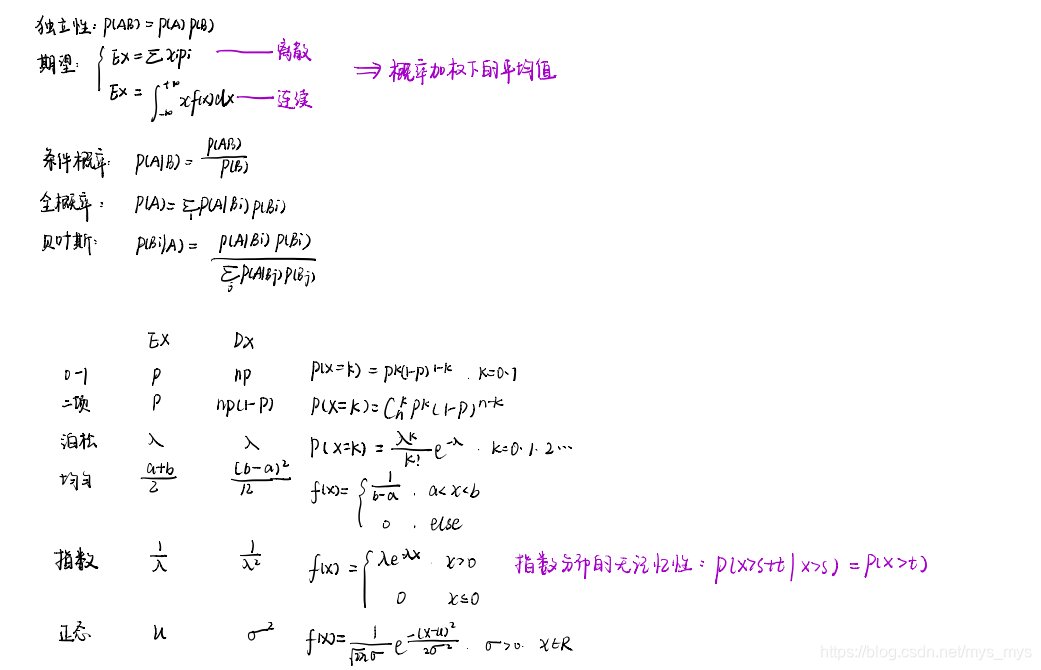 独立性: P(AB) = P(A) P(B)
期望: { EX = Σ xipi —— 离散
EX = ∫_{-∞}^{+∞} x f(x) dx —— 连续
⇒ 概率加权下的平均值
条件概率: P(A|B) = P(AB) / P(B)
全概率: P(A) = Σ_i P(A|Bi) P(Bi)
贝叶斯: P(Bi|A) = P(A|Bi) P(Bi) / Σ_j P(A|Bj) P(Bj)
EX DX
0-1 P np P(X=k) = p^k(1-p)^{1-k} . k=0.1
二项 P np(1-p) P(X=k) = C_n^k p^k (1-p)^{n-k}
泊松 λ λ P(X=k) = λ^k/k! e^{-λ} . k=0.1.2…
均匀 (a+b)/2 (b-a)^2/12 f(x) = { 1/(b-a) . a<x<b
0 . else
指数 1/λ 1/λ^2 f(x) = { λe^{-λx} . x>0
0 x≤0
指数分布的无记忆性: P(X>s+t | X>s) = P(X>t)
正态 u σ^2 f(x) = 1/(√2π σ) e^{-(x-u)^2/2σ^2} . σ>0. x∈R
https://blog.csdn.net/mys_mys